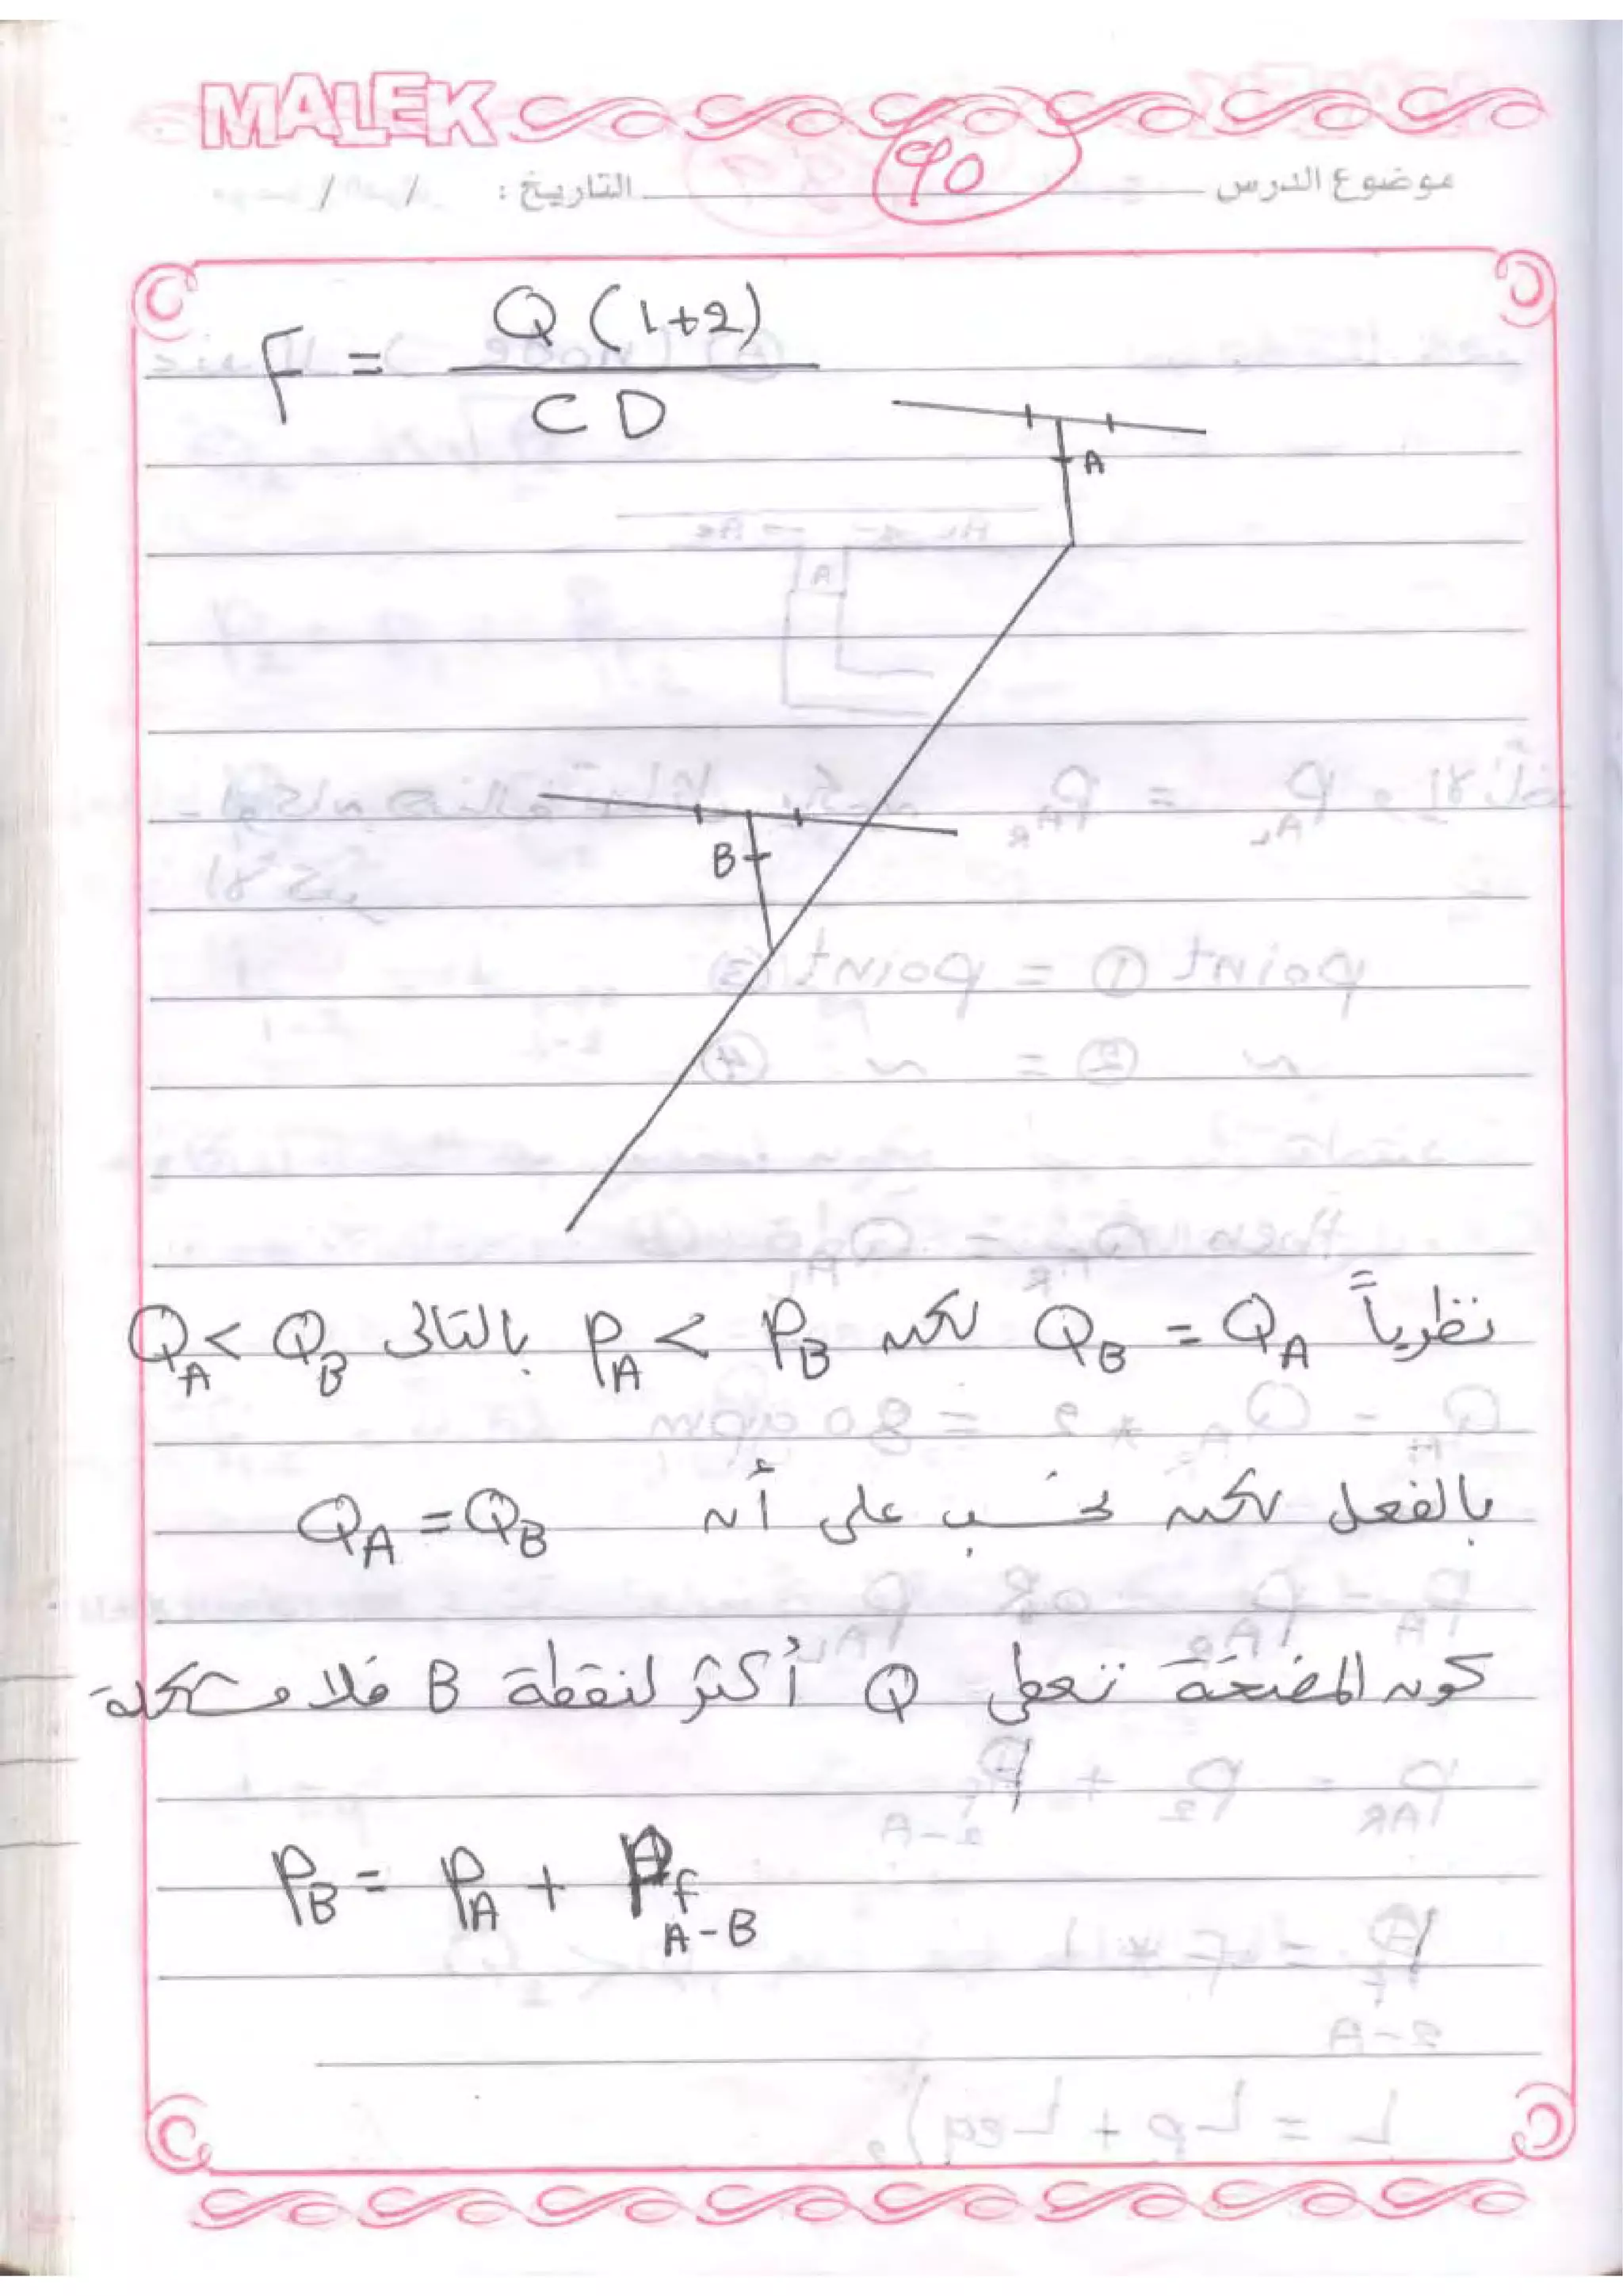 MALEK
موضوع الدرس 90 التاريخ : / /
F = Q (1+2) / CD
A
B
نظرياً QA = QB لكن PB > PA بالتالى QA < QB
بالفعل لكن نحسب على أن QA = QB
كون المضخة تعطى Q أكثر لنقطة B فلا مشكلة
PB = PA + Pf A-B